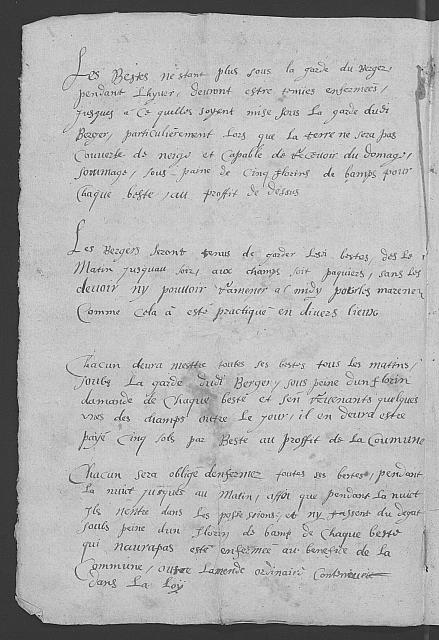 Les Bestes nestant plus sous la garde du Berger,
pendant Lhyuer, deuront estre tenües enfermées,
jusques a Ce quelles soyent mise sous La garde dudi
Berger, particulièrement lors que la terre ne sera pas
Couuerte de neige et Capable de receuoir du domage,
sommage, sous paine de Cinq florins de bamps pour
Chaque beste, au proffit de dessus
Les Bergers seront tenus de garder les bestes des le
Matin jusquau soir, aux champs soit paquiers, sans les
deuoir ny pouuoir ramener a midy
Comme Cela à esté practiqué en divers lieux
Chacun deura mettre toutes ses bestes tous les matins,
soubs La garde dudi Berger, sous peine dun florin
damande de Chaque beste et sen reuenants quelques
vnes des champs outre le jour, il en deura estre
payé Cinq sols par Beste au proffit de La Coumune
Chacun sera oblige denfermer toutes ses bestes, pendant
La nuict jusques au Matin, affin que pendant La nuict
Ils nentre dans les possessions, et ny fassent du degat
soubs peine dun florin de bamp de Chaque beste
qui naurapas esté enfermee au benefice de la
Commune, outre Lamende ordinaire Contenue
dans La Loy